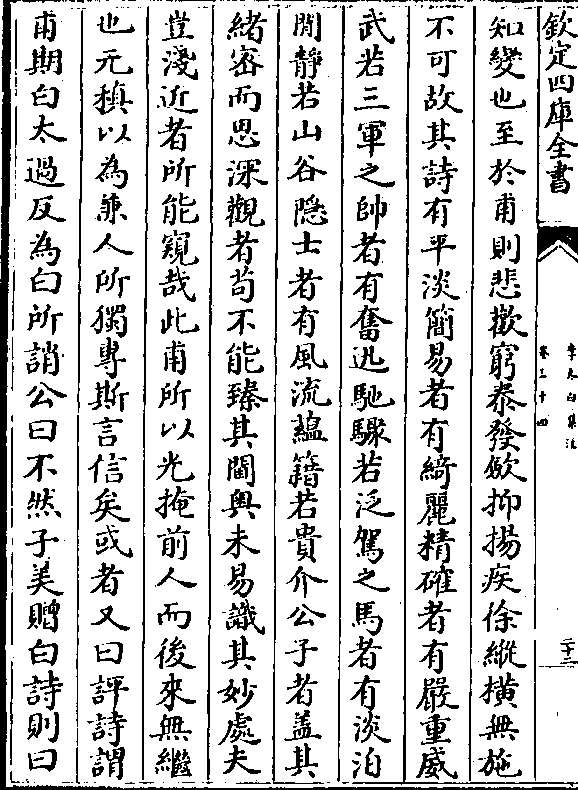 欽定四庫全書
李太白集注
卷三十四
二十三
知變也至於甫則悲歡窮泰發歛抑揚疾徐縱橫無施
不可故其詩有平淡簡易者有綺麗精確者有嚴重威
武若三軍之帥者有奮迅馳驟若泛駕之馬者有淡泊
閒靜若山谷隐士者有風流藴籍若貴介公子者葢其
緒宻而思深觀者苟不能臻其閫奥未易識其妙處夫
豈淺近者所能窺哉此甫所以光掩前人而後來無繼
也元稹以為兼人所獨專斯言信矣或者又曰評詩謂
甫期白太過反為白所誚公曰不然子美贈白詩則曰